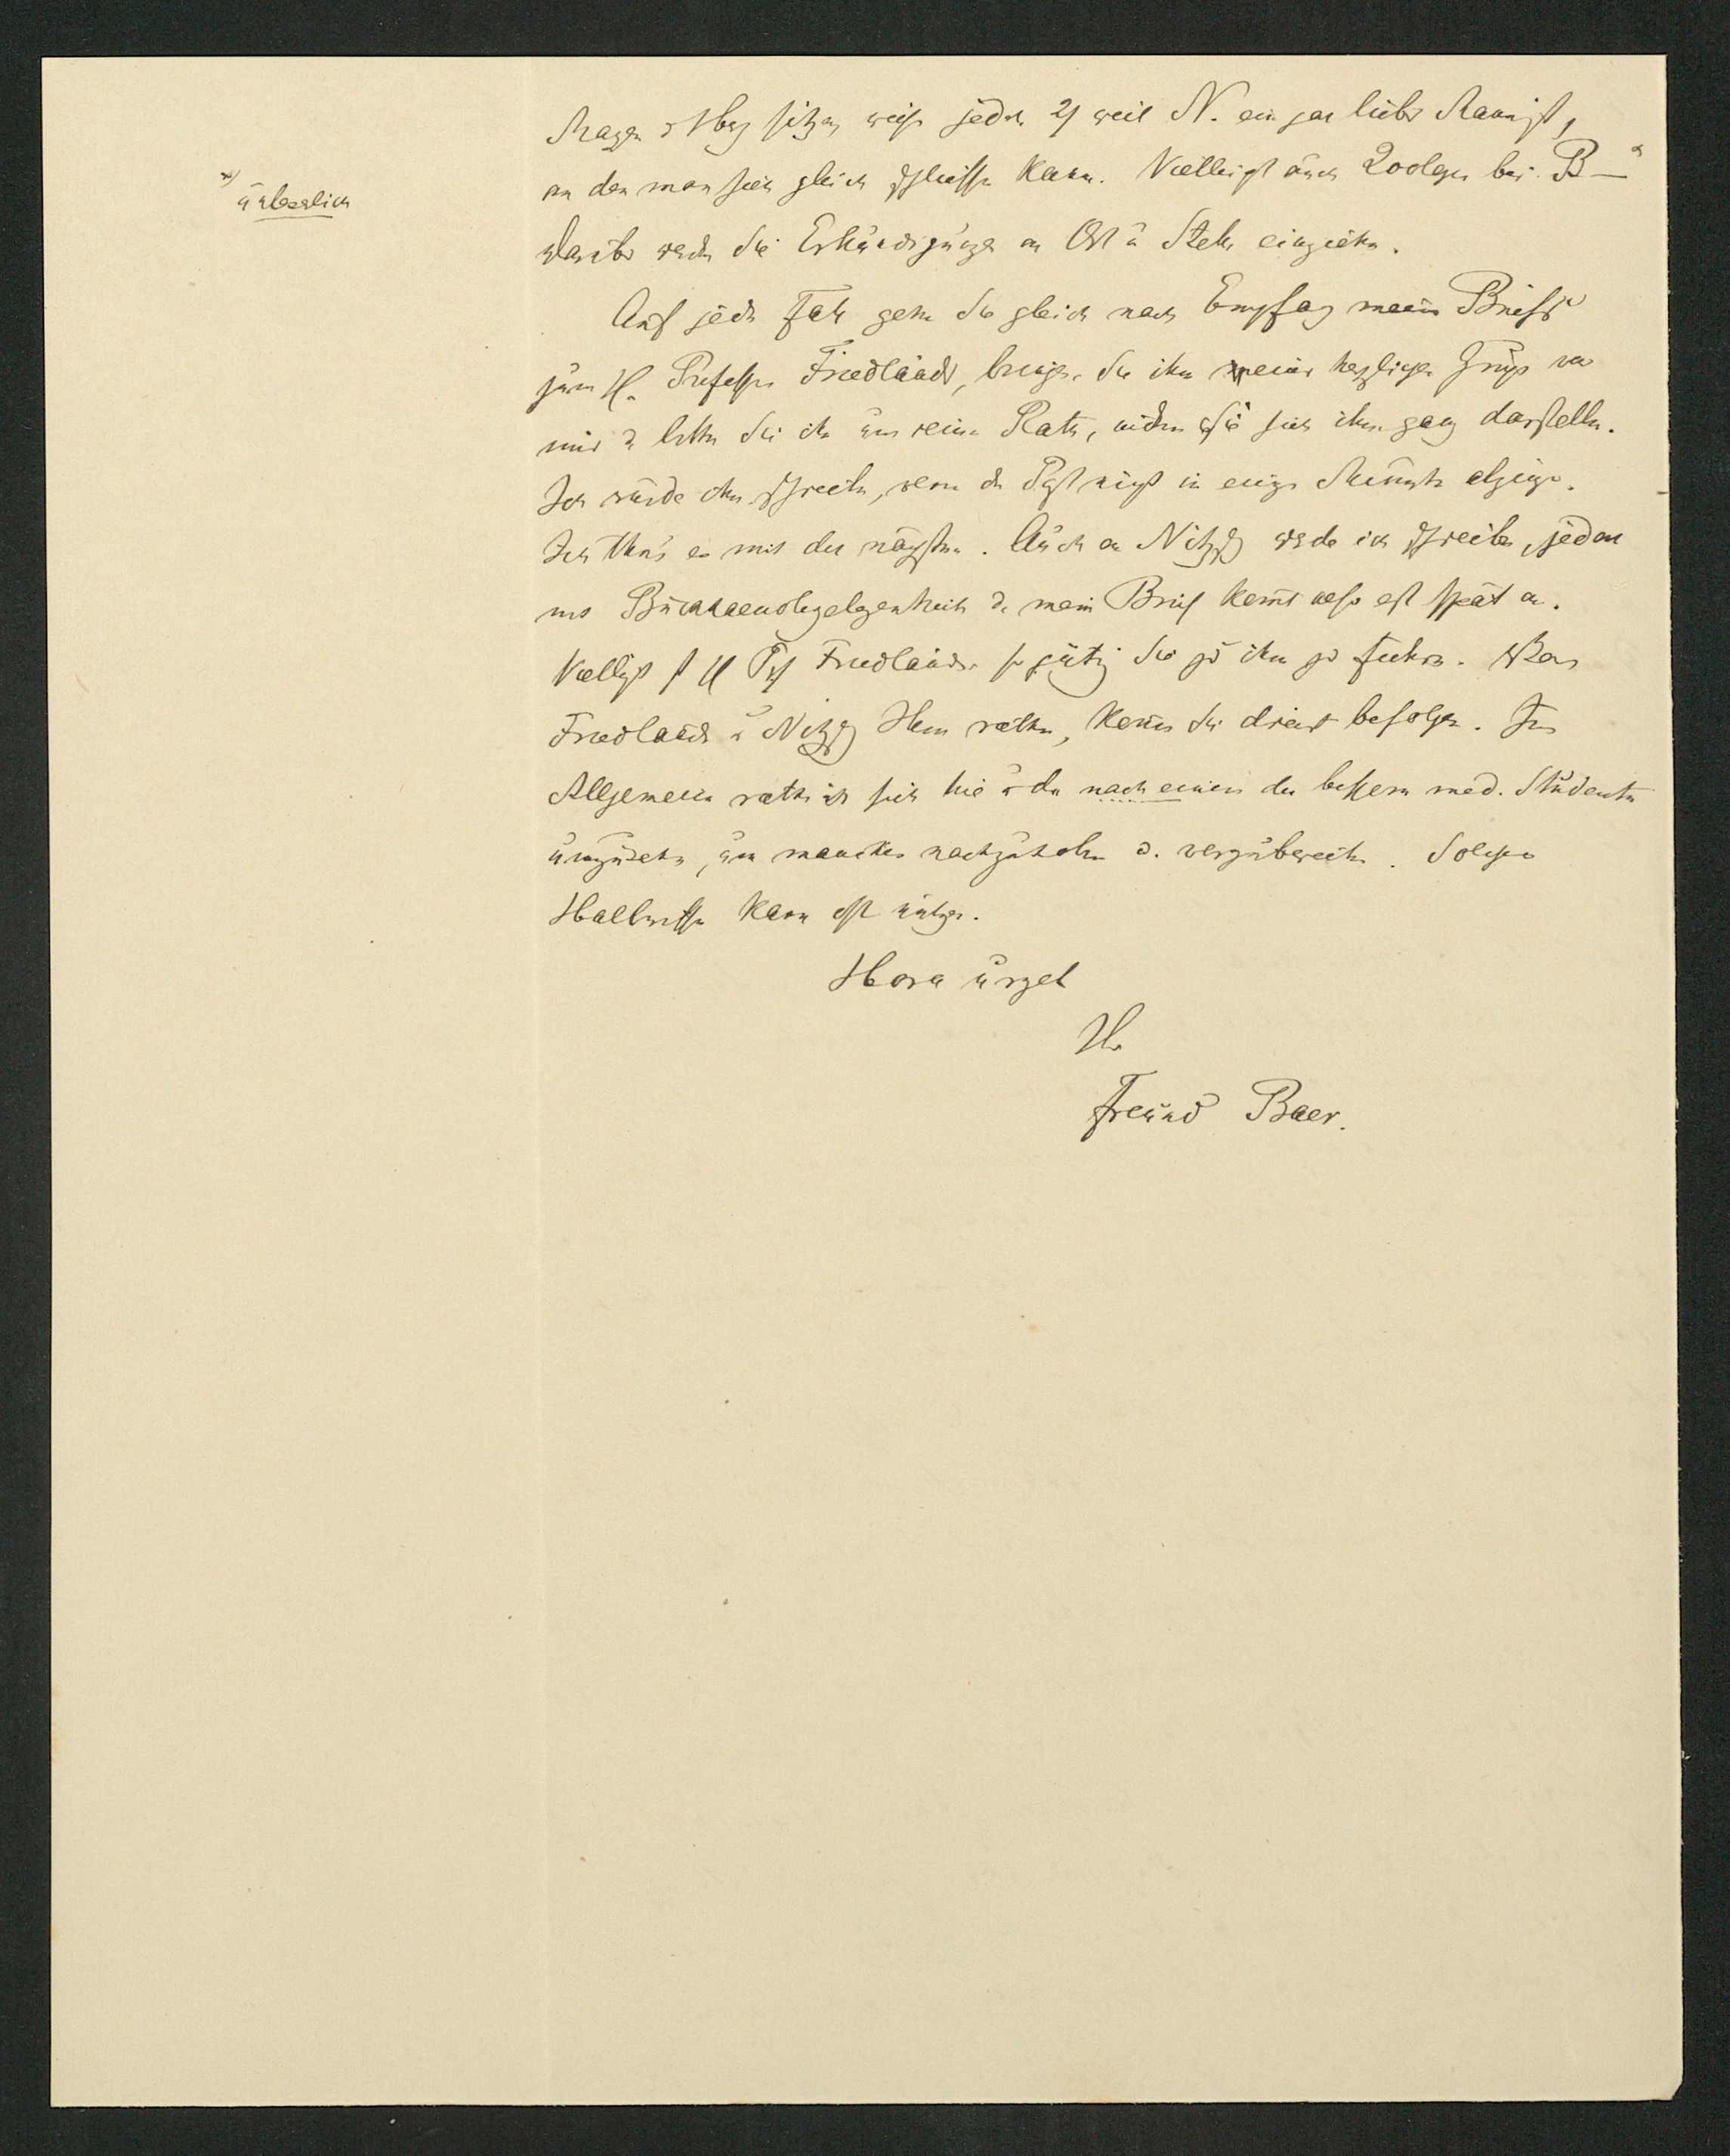 *) unleserlich
Magen u Herz sitzen weiss jeder 2) weil N. ein gar lieber Mann ist,
an den man sich gleich schliessen kann. Vielleicht auch Zoologie bei B—
Darüber werden Sie Erkundigungen an Ort u Stelle einziehen.
Auf jeden Fall gehen Sie gleich nach Empfang meines Briefes
zum H. Professor Friedländer, bringen Sie ihm einen herzlichen Gruss von
mir u bitten Sie ihn um seinen Rath, indem Sie sich ihm ganz darstellen.
Ich würde ihm schreiben, wenn die Post nicht in einigen Minuten abginge.
Ich thu's es mit der nächsten. Auch an Nitzsch werde ich schreiben, jedoch
mit Buchhändlergelegenheit u. mein Brief kommt also erst spät an.
Vielleicht ist H Prof Friedländer so gütig Sie zu ihm zu führen. Was
Friedländer u Nitzsch Ihnen rathen, können Sie dreist befolgen. Im
Allgemeinen rathe ich sich hie u da nach einem der bessern med. Studenten
umzusehn, um manches nachzuholen u. vorzubereiten. Solches
Halbwissen kann oft nützen.
Hora urget
Ihr
Freund Baer.